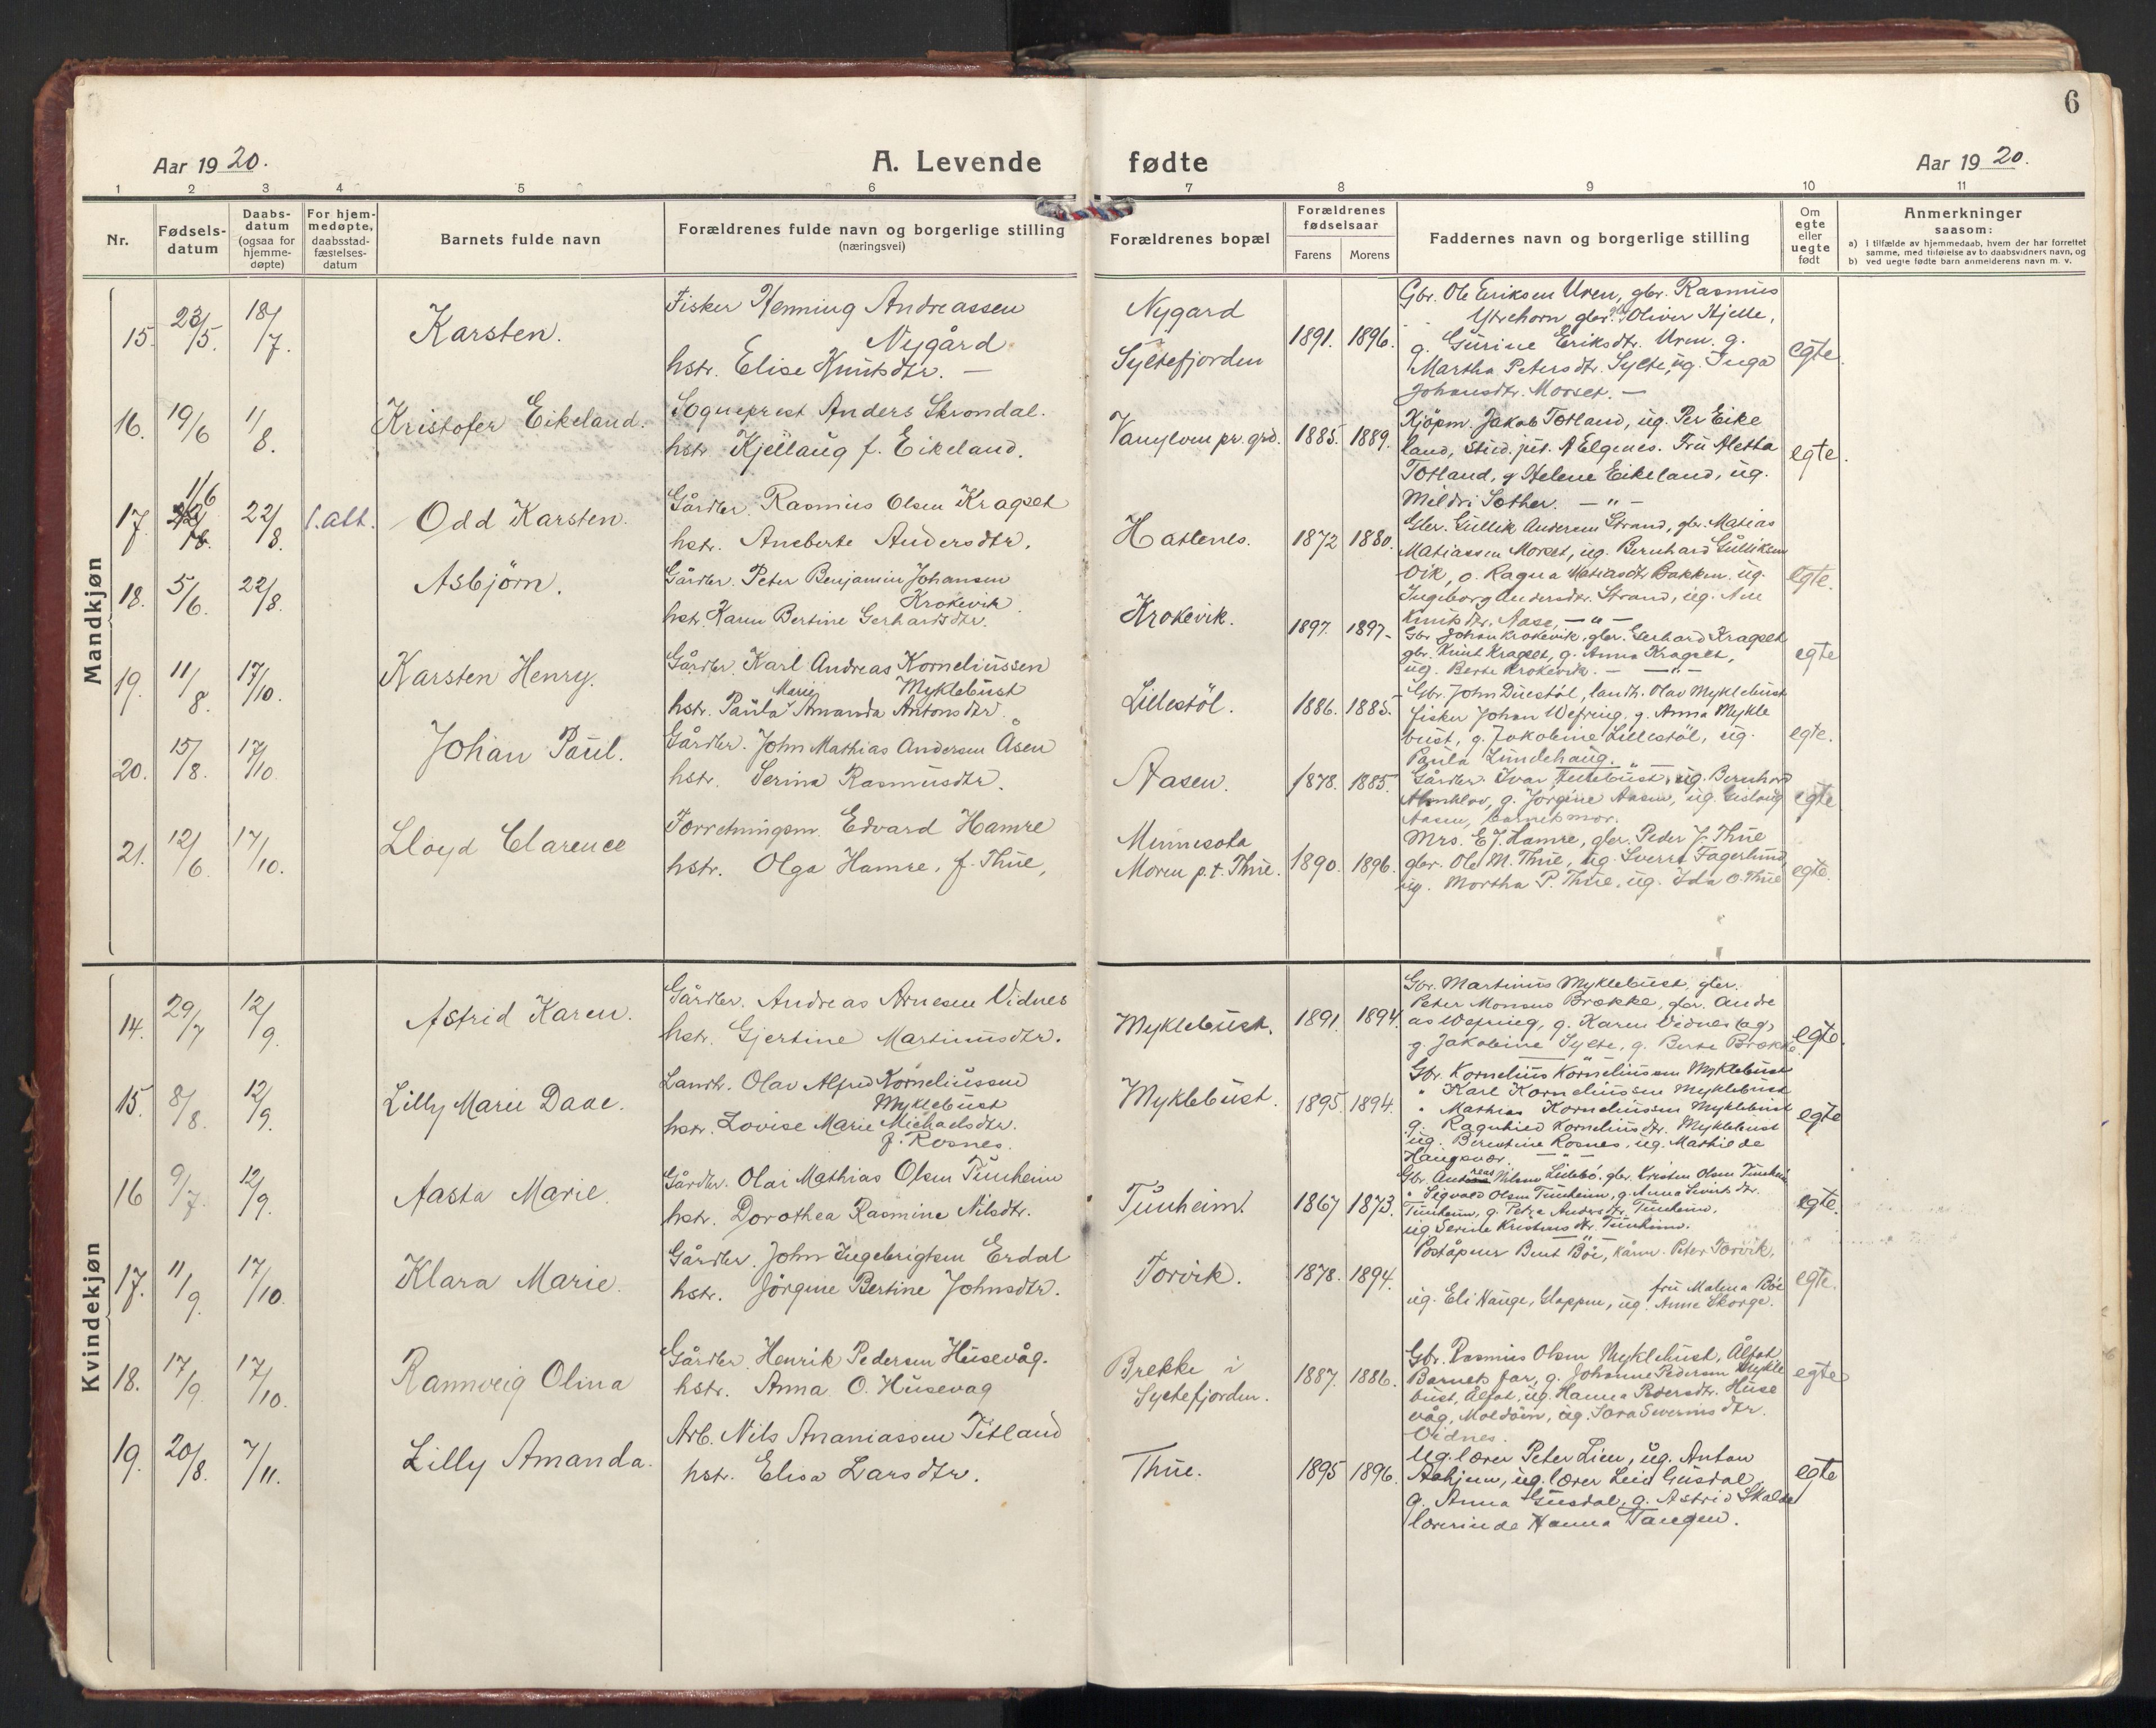 6
Aar 1920.
A. Levende fødte
Aar 1920.
1 2 3 4 5 6 7 8 9 10 11
Nr.
Fødsels-
datum
Daabs-
datum
(ogsaa for
hjemme-
døpte)
For hjem-
medøpte,
daabsstad-
fæstelses-
datum
Barnets fulde navn
Forældrenes fulde navn og borgerlige stilling
(næringsvei)
Forældrenes bopæl
Forældrenes
fødselsaar
Farens Morens
Faddernes navn og borgerlige stilling
Om
egte
eller
uegte
født
Anmerkninger
saasom:
a) i tilfælde av hjemmedaab, hvem der har forrettet
samme, med tilføielse av to daabsvidners navn, og
b) ved uegte fødte barn anmelderens navn m. v.
Mandkjøn
15. 23/5. 18/7. Karsten.
Fisker Henning Andreassen
Nygård
hstr. Elise Knutsdtr. —
Nygard
Syltefjorden
1891. 1896.
Gbr. Ole Eriksen Uren, gbr. Rasmus
Ytrehorn gbr. Oliver Hjelle,
g. Gurine Eriksdtr. Uren. g.
Martha Petersdtr. Sylte, ug. Inga
Johansdtr. Morset. —
egte.
16. 19/6 1/8. Kristofer Eikeland.
Sogneprest Anders Skrondal.
hstr. Kjellaug f. Eikeland.
Vanylven pr.grd.
1885. 1889.
Kjöpm. Jakob Totland, ug. Per Eike
land, stud. jur. A Elgenes. Fru Aletta
Totland, g Helene Eikeland, ug.
Mildri Sæther. — " —
egte.
17. 1/6 22/8. 1. alt. Odd Karsten.
Gårdbr. Rasmus Olsen Kragset
hstr. Aneberte Andersdtr.
Hatlenes.
1872 1880.
Gbr. Gullik Andersen Strand, gbr. Matias
Matiassen Morset, ug. Bernhard Gulliksen
Vik, g. Ragna Matiasdtr Bakken. ug.
Ingeborg Andersdtr. Strand, ug. Ane
Knutsdtr. Aase, — " —
egte.
18. 5/6. 22/8. Asbjörn.
Gårdbr. Peter Benjamin Johansen
Krokevik.
hstr. Karen Bertine Gerhardsdtr.
Krokevik.
1897. 1897-
Gbr. Johan Krokevik, gbr. Gerhard Kragset
gbr. Knut Kragset, g. Anna Kragset,
ug. Berte Krokevik. — — " —
egte
19. 11/8. 17/10. Karsten Henry.
Gårdbr. Karl Andreas Korneliussen
Marie Myklebust
hstr. Paula Amanda Antonsdtr.
Lillestöl.
1886. 1885.
Gbr. John Lillestöl, landh. Olav Myklebust
fisker Johan Wefring, g. Anna Mykle
bust, g. Jakobine Lillestöl, ug.
Paula Lundehaug. "
egte.
20. 15/8. 17/10. Johan Paul.
Gårdbr. John Mathias Andersen Åsen
hstr. Serina Rasmusdtr.
Aasen.
1878. 1885.
Gårdbr. Ivar Indrebust, ug. Bernhard
Almklov, g. Jörgine Aasen, ug. Gislaug
Aasen, barnets mor.
egte
21. 12/6. 17/10. Lloyd Clarence
Forretningsm. Edvard Hamre
hstr. Olga Hamre, f. Thue,
Minnesota
Moren p.t. Thue.
1890. 1896.
Mrs. E. J. Hamre, gbr. Peder J. Thue
gbr. Ole M. Thue, ug. Sverre Fagerlund,
ug. Martha P. Thue, ug. Ida O. Thue
egte.
Kvindekjøn
14. 29/7 12/9. Astrid Karen.
Gårdbr. Andreas Arnesen Vidnes
hstr. Gjertine Martinusdtr.
Myklebust.
1891. 1894.
Gbr. Martinus Myklebust, gbr.
Peter Monsens Brække, gbr. Andre
as Wefring, g. Karen Vidnes (ag)
g. Jakobine Sylte, g. Berte Brække.
egte.
15. 8/8. 12/9. Lilly Marie Daae.
Landh. Olav Alfred Korneliussen
Myklebust
hstr. Lovise Marie Michaelsdtr.
f. Rosnes.
Myklebust.
1895. 1894.
Gbr. Kornelius Korneliussen Myklebust
" Karl Korneliussen Myklebust
" Mathias Korneliussen Myklebust
g. Ragnhild Korneliusdtr. Myklebust
ug. Berentine Rosnes, ug. Mathilde
Haugsvær. — " —
egte
16 9/7. 12/9. Aasta Marie.
Gårdbr. Olai Mathias Olsen Tunheim
hstr. Dorothea Rasmine Nilsdtr.
Tunheim.
1867 1873.
Gbr. Andreas Nilsen Lillebö, gbr. Kristen Olsen Tunheim
" Sigvald Olsen Tunheim, g. Anna Sivertsdtr.
Tunheim, g. Petra Andersdtr. Tunheim,
ug Serine Kristensdtr. Tunheim.
egte.
17. 11/9. 17/10. Klara Marie.
Gårdbr. John Ingebrigtsen Erdal
hstr. Jörgine Bertine Johnsdtr.
Torvik.
1878. 1894.
Poståpner Bent Böe, kårm. Peter Torvik,
fru Malena Böe
ug. Eli Hauge, Glappen, ug. Anne Skorge.
egte.
18. 17/9. 17/10. Rannveig Olina
Gårdbr. Henrik Pedersen Husevåg.
hstr. Anna O. Husevag
Brekke i
Syltefjorden.
1887. 1886.
Gbr. Rasmus Olsen Myklebust, Ålfot
Barnets far, g. Johanne Pedersen Mykle
bust, Ålfot, ug. Hanna Pedersdtr. Huse
våg, Moldöen, ug. Sara Severinsdtr.
Vidnes.
egte
19. 20/8. 7/11. Lilly Amanda.
Arb. Nils Ananiassen Titland
hstr. Elisa Larsdtr.
Thue.
1895 1896.
Ug. lærer Peter Lien, ug. Anton
Askjem, ug. lærer Leiv Gusdal,
g. Anna Gusdal, g. Astrid Skalde
lærerinde Hanna Tangen.
egte